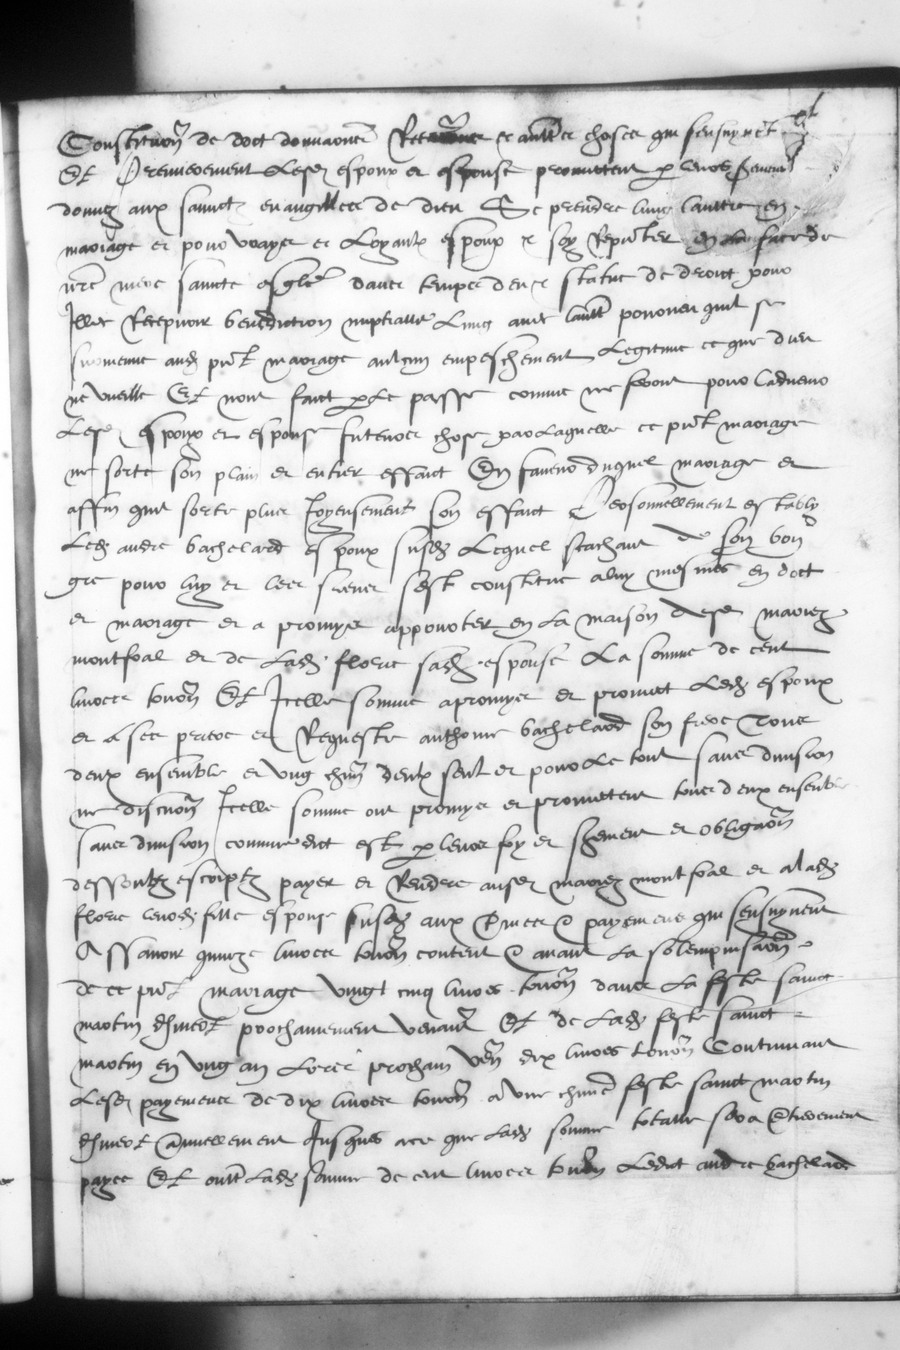 Constitution de doct donnaon et autres choses qui sensuyvent
Et Premierement Lesd espoux et espouse promettent par leurs serment
donnez aux sainctz evangilles de dieu Se prendre lung lautre en
mariage et pour vrays et Loyaulx espoux et soy Reputer en La face de
nre mere saincte esglie dans temps deu et statue de droict pour
Illec Recepvoir benediction nuptialle Lung avec laultre pourveu quil se
survienne aud pnt mariage aulcun empeschement Legitime ce que dieu
ne vueille Et nont faict par Le passe comme ne feront pour Ladvenir
Lesd espoux et espouse futures chose par Laquelle ce pnt mariage
ne sorte son plain et entier effaict En faveur duquel mariage et
affin quil sorte plus Joyeusement son effaict Personnellement estably
Led andre bachelard espoux susd Lequel scachant de son bon
gre pour luy et les siens sest constitue a luy mesmes en doct
et mariage et a promys apporter en La maison desd mariez
montfoal et de Lad florie sad espouse La somme de cent
livres tourn Et Icelle somme a promys et promet Led espoux
et a ses prieres et Requeste anthoine bachelard son frere Tous
deux ensemble et ung chun deulx seul et pour Le tout sans division
ne discution Icelle somme ont promys et promettent tous deux ensemble
sans division comme dict est par leurs foy et serment et obligaon
dessoubz escriptz payer et Rendre ausd mariez montfoal et a lad
florie leurd fille espouse susd aux termes et payemens qui sensuyvent
Assavoir quinze livres tourn content et avant La solempnisaon
de ce pnt mariage vingt cinq livres tourn dans La feste sainct
martin dhivert prochainement venant Et de Lad feste sainct
martin en ung an Lors prochain ven dix livres tourn Continuant
Lesd payemens de dix livres tourn a une chune feste sainct martin
dhivert annuellement Jusques a ce que Lad somme totalle sera entierement
payee Et oultre Lad somme de cent livres tourn Ledict andre bachelard